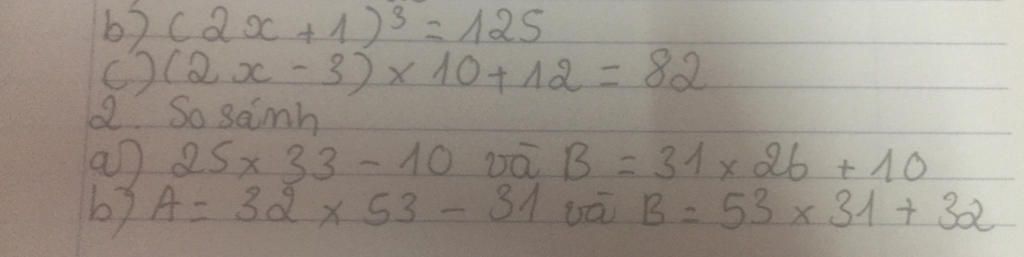 b) (2x + 1)³ = 125
c) (2x - 3) × 10 + 12 = 82
2. So sánh
a) 25 × 33 - 10 và B = 31 × 26 + 10
b) A = 32 × 53 - 31 và B = 53 × 31 + 32